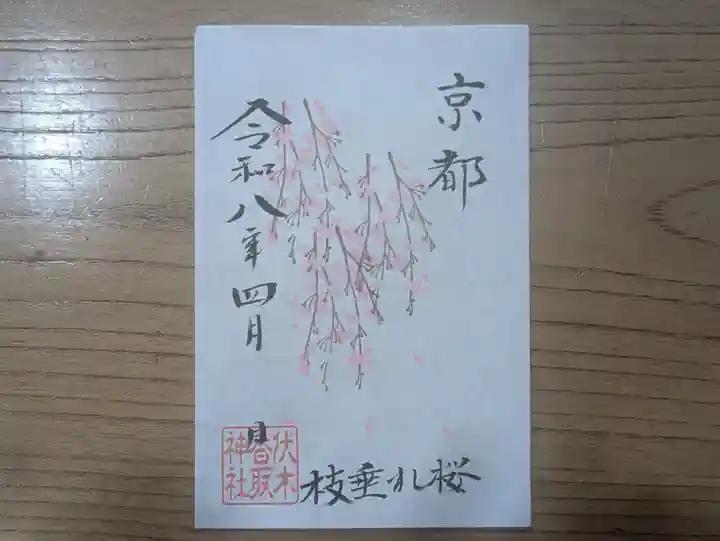 京都
枝垂れ桜
令和八年四月
日
伏木
香取
神社